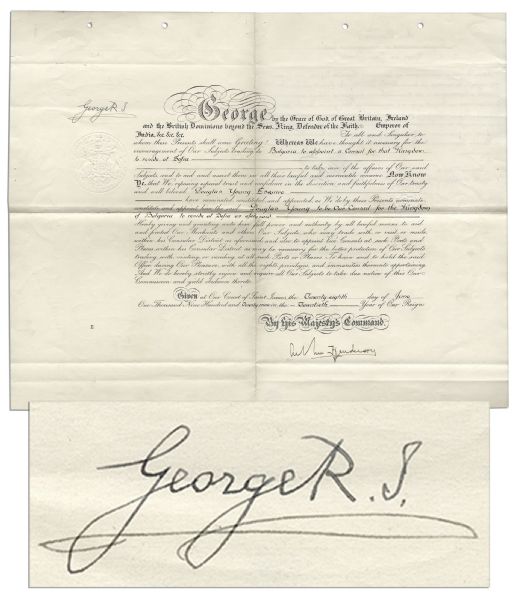 George R. I.
George
by the Grace of God, of Great Britain, Ireland
and the British Dominions beyond the Seas King, Defender of the Faith, Emperor of
India, &c &c &c. To all and Singular to
whom these Presents shall come Greeting! Whereas We have thought it necessary for the
encouragement of Our Subjects trading to Bulgaria to appoint a Consul for that Kingdom
to reside at Sofia
to take care of the affairs of Our said
Subjects and to aid and assist them in all their lawful and mercantile concerns Now Know
Ye, that We reposing especial trust and confidence in the discretion and faithfulness of Our trusty
and well beloved Douglas Young Esquire
have nominated constituted and appointed as We do by these Presents nominate
constitute and appoint him the said Douglas Young to be Our Consul for the Kingdom
of Bulgaria to reside at Sofia as aforesaid
Hereby giving and granting unto him full power and authority by all lawful means to aid
and protect Our Merchants and others Our Subjects who may trade with or visit or reside
within his Consular District as aforesaid and also to appoint Vice Consuls at such Ports and
Places within his Consular District as may be necessary for the better protection of Our Subjects
trading with, visiting, or residing at all such Ports or Places To have and to hold the said
Office during Our Pleasure, with all the rights, privileges, and immunities thereunto appertaining.
And We do hereby strictly enjoin and require all Our Subjects to take due notice of this Our
Commission and yield obedience thereto.
Given at Our Court of Saint James the Twenty-eighth day of June
One Thousand Nine Hundred and in the Twentieth Year of Our Reign
By His Majesty's Command.
Arthur Henderson
George R. I.